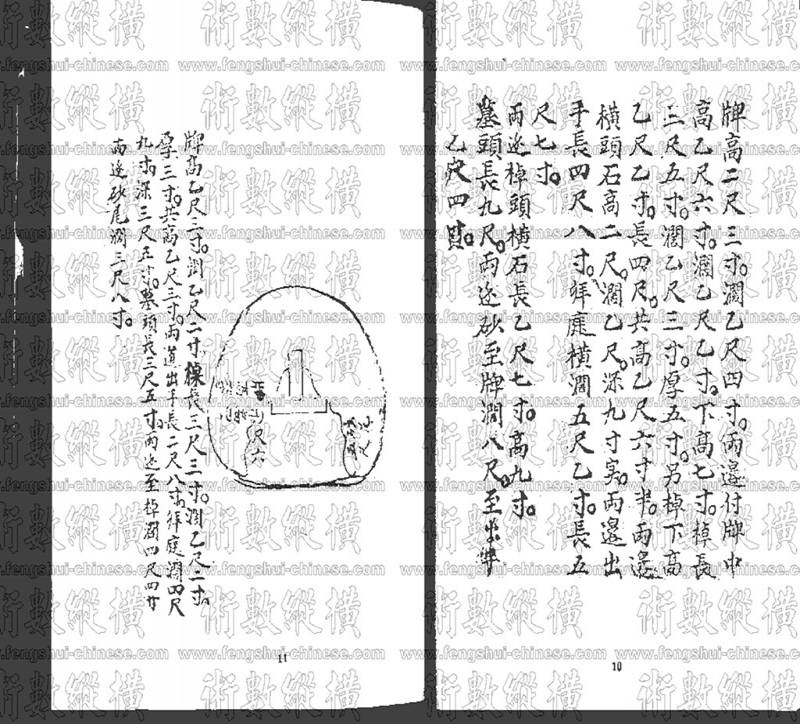 牌高二尺三寸。濶乙尺四寸。両邉付牌中
高乙尺六寸。濶乙尺乙寸。下髙七寸。棹長
二尺五寸。濶乙尺三寸。厚五寸。另棹下高
乙尺乙寸。長四尺。共高乙尺六寸半。両邉
横頭石高二尺。濶乙尺。深九寸。両邉出
手長四尺八寸。拜庭横濶五尺乙寸。長五
尺七寸。
両边棹頭横石長乙尺七寸。高九寸。
墓頭長九尺。両边砂至牌濶八尺。至出
乙穴四
10
牌高乙尺三寸。濶乙尺二寸。棹長三尺三寸。濶乙尺二寸。
厚三寸。共高乙尺二寸。両邉出手長二尺八寸。拜庭濶四尺
九寸。深三尺五寸。墓頭長三尺五寸。両边至棹濶四尺四寸
両边砂尾濶三尺八寸。
尺六
11
術數縱橫
www.fengshui-chinese.com